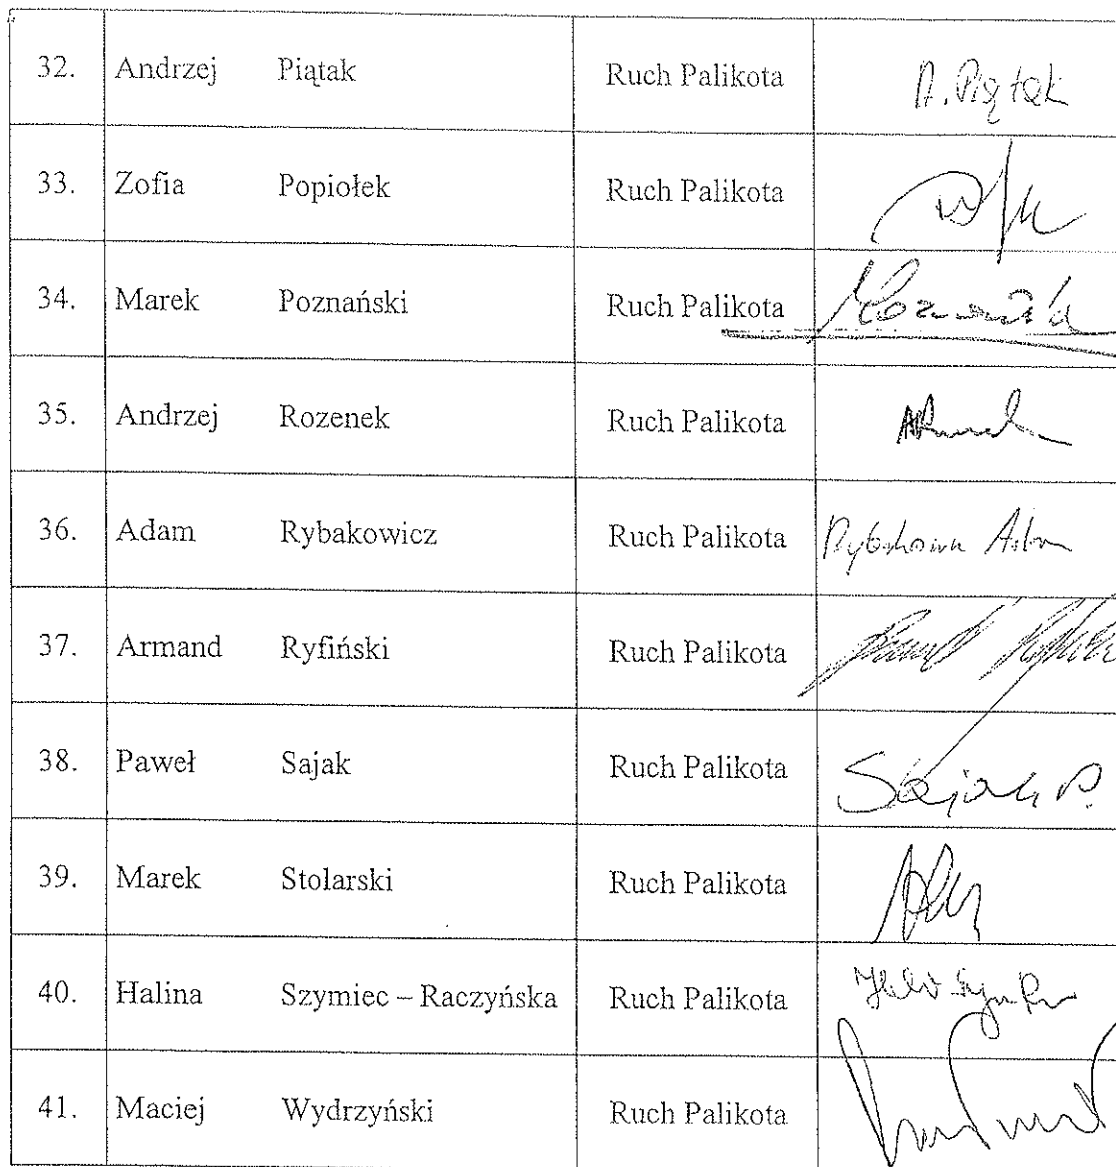 32. Andrzej Piątak Ruch Palikota A. Piątak
33. Zofia Popiołek Ruch Palikota
34. Marek Poznański Ruch Palikota
35. Andrzej Rozenek Ruch Palikota
36. Adam Rybakowicz Ruch Palikota
37. Armand Ryfiński Ruch Palikota
38. Paweł Sajak Ruch Palikota Sajak P.
39. Marek Stolarski Ruch Palikota
40. Halina Szymiec – Raczyńska Ruch Palikota
41. Maciej Wydrzyński Ruch Palikota